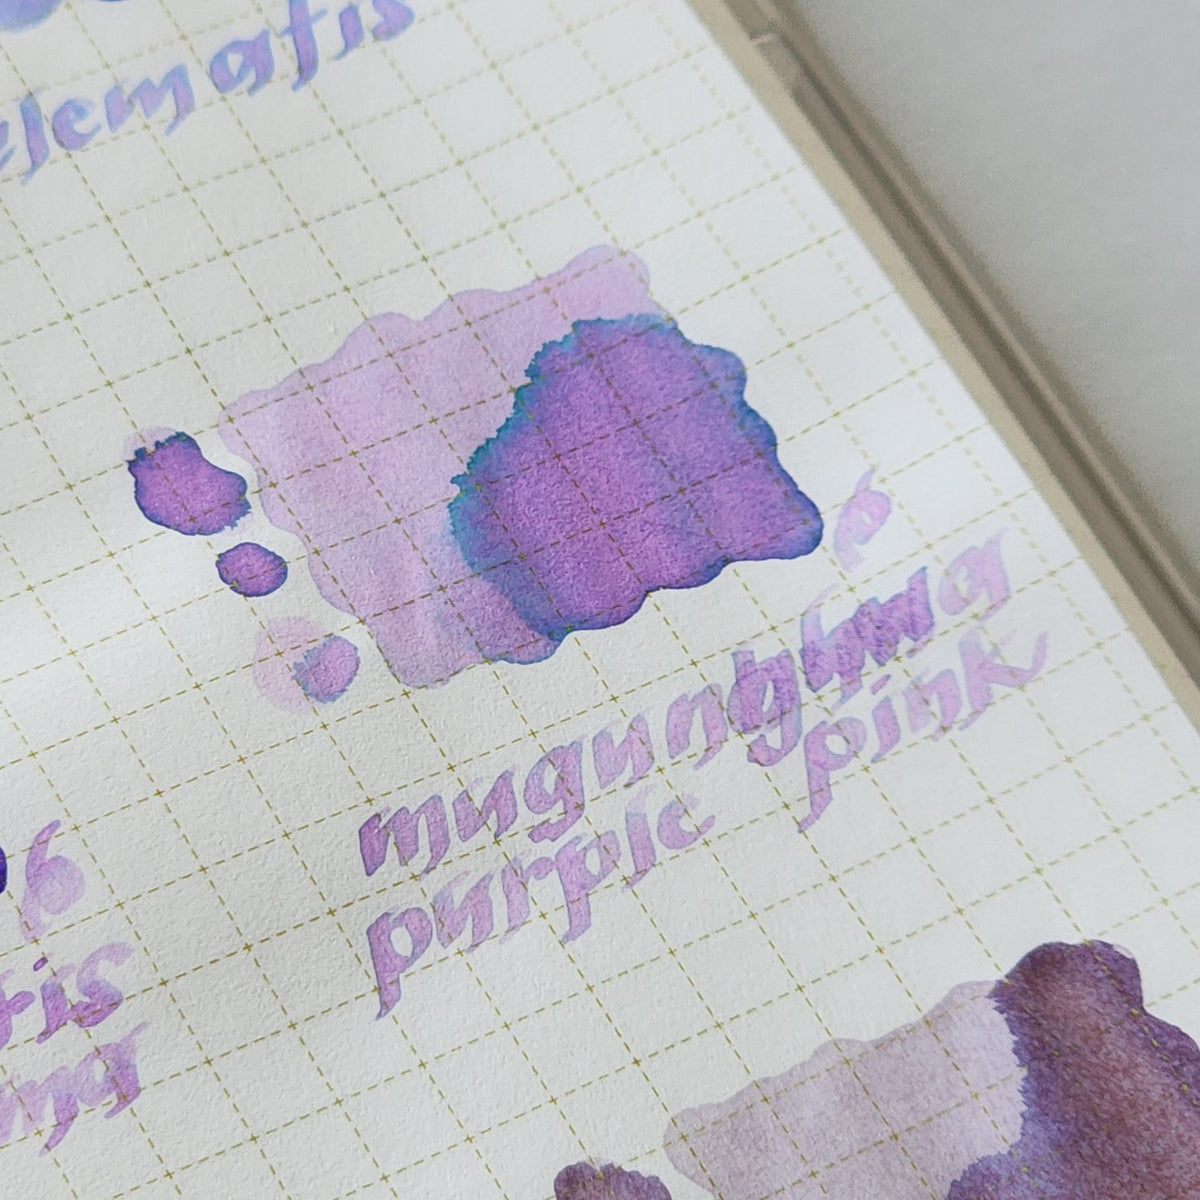 clematis
mugunghwa
purple pink
tis